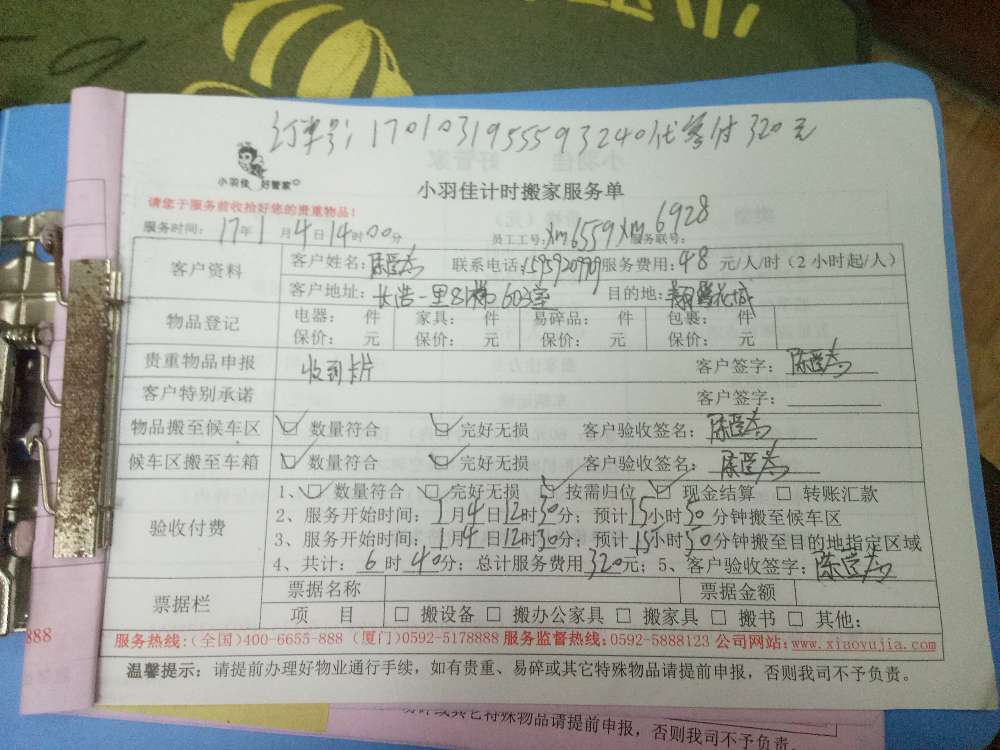 订单号:170103195559324代客付320元
小羽佳 好管家
小羽佳计时搬家服务单
请您于服务前收拾好您的贵重物品!
服务时间: 17年1月4日14时00分 员工工号:xm6559 xm6928 服务联号:
客户资料 客户姓名: 联系电话:15959209909 服务费用:48 元/人/时(2小时起/人)
客户地址:长浩一里81梯603室 目的地:翔鹭花城
物品登记 电器: 件 家具: 件 易碎品: 件 包裹: 件
保价: 元 保价: 元 保价: 元 保价: 元
贵重物品申报 收到卡片 客户签字:
客户特别承诺 客户签字:
物品搬至候车区 数量符合 完好无损 客户验收签名:
候车区搬至车箱 数量符合 完好无损 客户验收签名:
验收付费 1、 数量符合 完好无损 按需归位 现金结算 转账汇款
2、服务开始时间:1月4日12时30分;预计15小时50分钟搬至候车区
3、服务开始时间:1月4日12时30分;预计15小时50分钟搬至目的地指定区域
4、共计:6时40分;总计服务费用320元;5、客户验收签字:
票据栏 票据名称 票据金额
项 目 搬设备 搬办公家具 搬家具 搬书 其他:
服务热线:(全国)400-6655-888 (厦门)0592-5178888 服务监督热线:0592-5888123 公司网站:www.xiaoyujia.com
温馨提示:请提前办理好物业通行手续,如有贵重、易碎或其它特殊物品请提前申报,否则我司不予负责。
888
易碎或其它特殊物品请提前申报,否则我司不予负责。